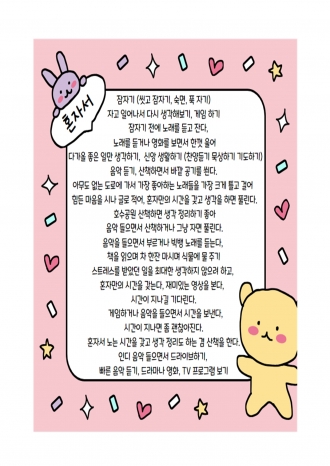 혼자서
잠자기 (씻고 잠자기, 숙면, 푹 자기)
자고 일어나서 다시 생각해보기, 게임 하기
잠자기 전에 노래를 듣고 잔다.
노래를 듣거나 영화를 보면서 한껏 울어
다가올 좋은 일만 생각하기, 신앙 생활하기 (찬양듣기 묵상하기 기도하기)
음악 듣기, 산책하면서 바깥 공기를 쐰다.
아무도 없는 도로에 가서 가장 좋아하는 노래들을 가장 크게 틀고 걸어
힘든 마음을 시나 글로 적어, 혼자만의 시간을 갖고 생각을 하면 풀린다.
호수공원 산책하면서 생각 정리하기 좋아
음악 들으면서 산책하거나 그냥 자면 풀린다.
음악을 들으면서 부르거나 빅뱅 노래를 듣는다.
책을 읽으며 차 한잔 마시며 식물에 물 주기
스트레스를 받았던 일을 최대한 생각하지 않으려 하고,
혼자만의 시간을 갖는다. 재미있는 영상을 본다.
시간이 지나길 기다린다.
게임하거나 음악을 들으면서 시간을 보낸다.
시간이 지나면 좀 괜찮아진다.
혼자서 노는 시간을 갖고 생각 정리도 하는 겸 산책을 한다.
인디 음악 들으면서 드라이브하기,
빠른 음악 듣기, 드라마나 영화, TV 프로그램 보기